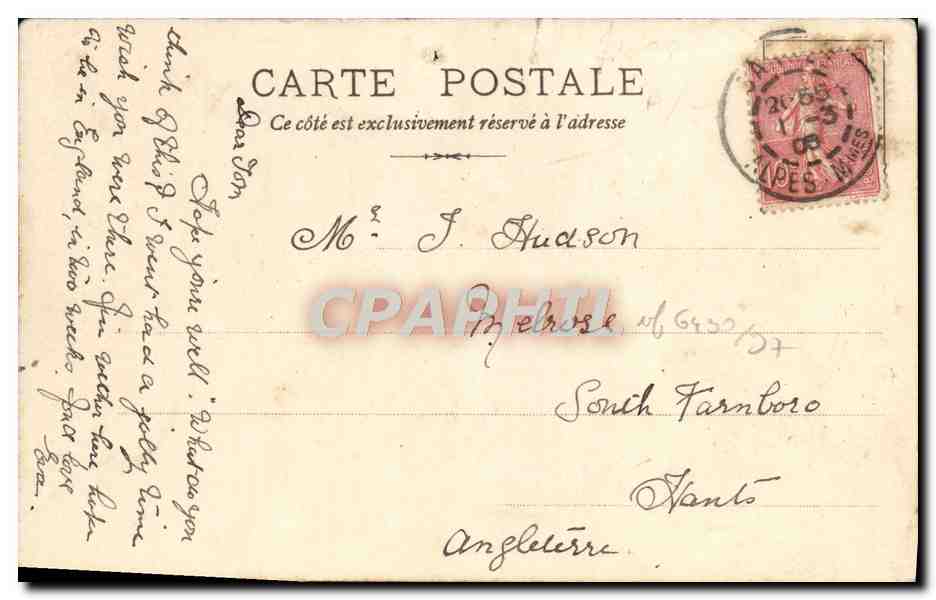 CARTE POSTALE
Ce côté est exclusivement réservé à l'adresse
Dear Tom
Hope you're well. "What do you
think of this? I went had a jolly time
Wish you were there. here, hope
to be in England, in two weeks. love
Eva.
Mr. J. Hudson
Melrose
South Farnboro
Hants
Angleterre.
ALPES MMES
CPAPHIL